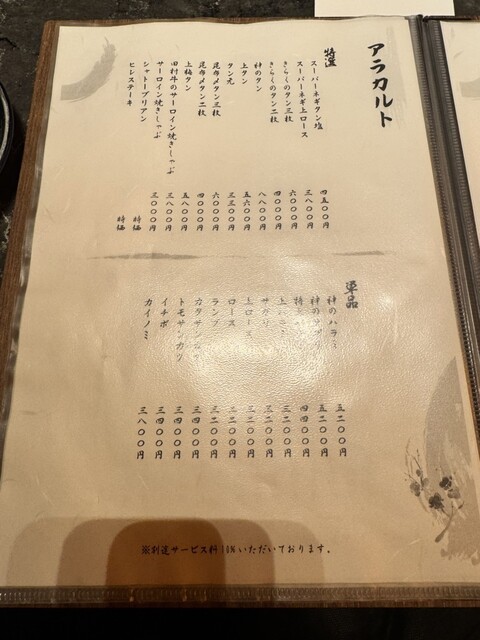 アラカルト
特選
スーパーネギタン塩 四五〇〇円
スーパーネギ上ロース 三八〇〇円
きらくのタン三枚 六〇〇〇円
きらくのタン二枚 四〇〇〇円
神のタン 八八〇〇円
上タン 五六〇〇円
タン元 三三〇〇円
昆布〆タン三枚 六〇〇〇円
昆布〆タン二枚 四〇〇〇円
上梅タン 五八〇〇円
田村牛のサーロイン焼きしゃぶ 三八〇〇円
サーロイン焼きしゃぶ 三〇〇〇円
シャトーブリアン 時価
ヒレステーキ 時価
単品
神のハラミ 五二〇〇円
神のサガリ 五二〇〇円
四四〇〇円
上ハラミ 三二〇〇円
サガリ 三二〇〇円
上ロース 三二〇〇円
ロース 二二〇〇円
ランプ 三二〇〇円
カタサンカク 三四〇〇円
トモサンカク 三四〇〇円
イチボ 三四〇〇円
カイノミ 三八〇〇円
※別途サービス料10%いただいております。